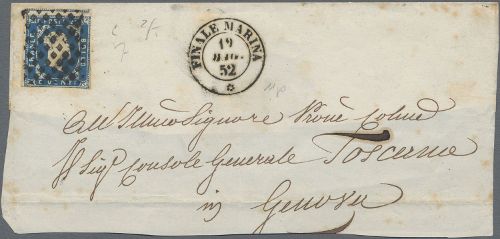 FRANCO BOLLO
C. VENTI
FINALE MARINA
19
MAG
52
All' Illmo Signore Prone Colmo
Il Sigr Console Generale Toscano
in Genova